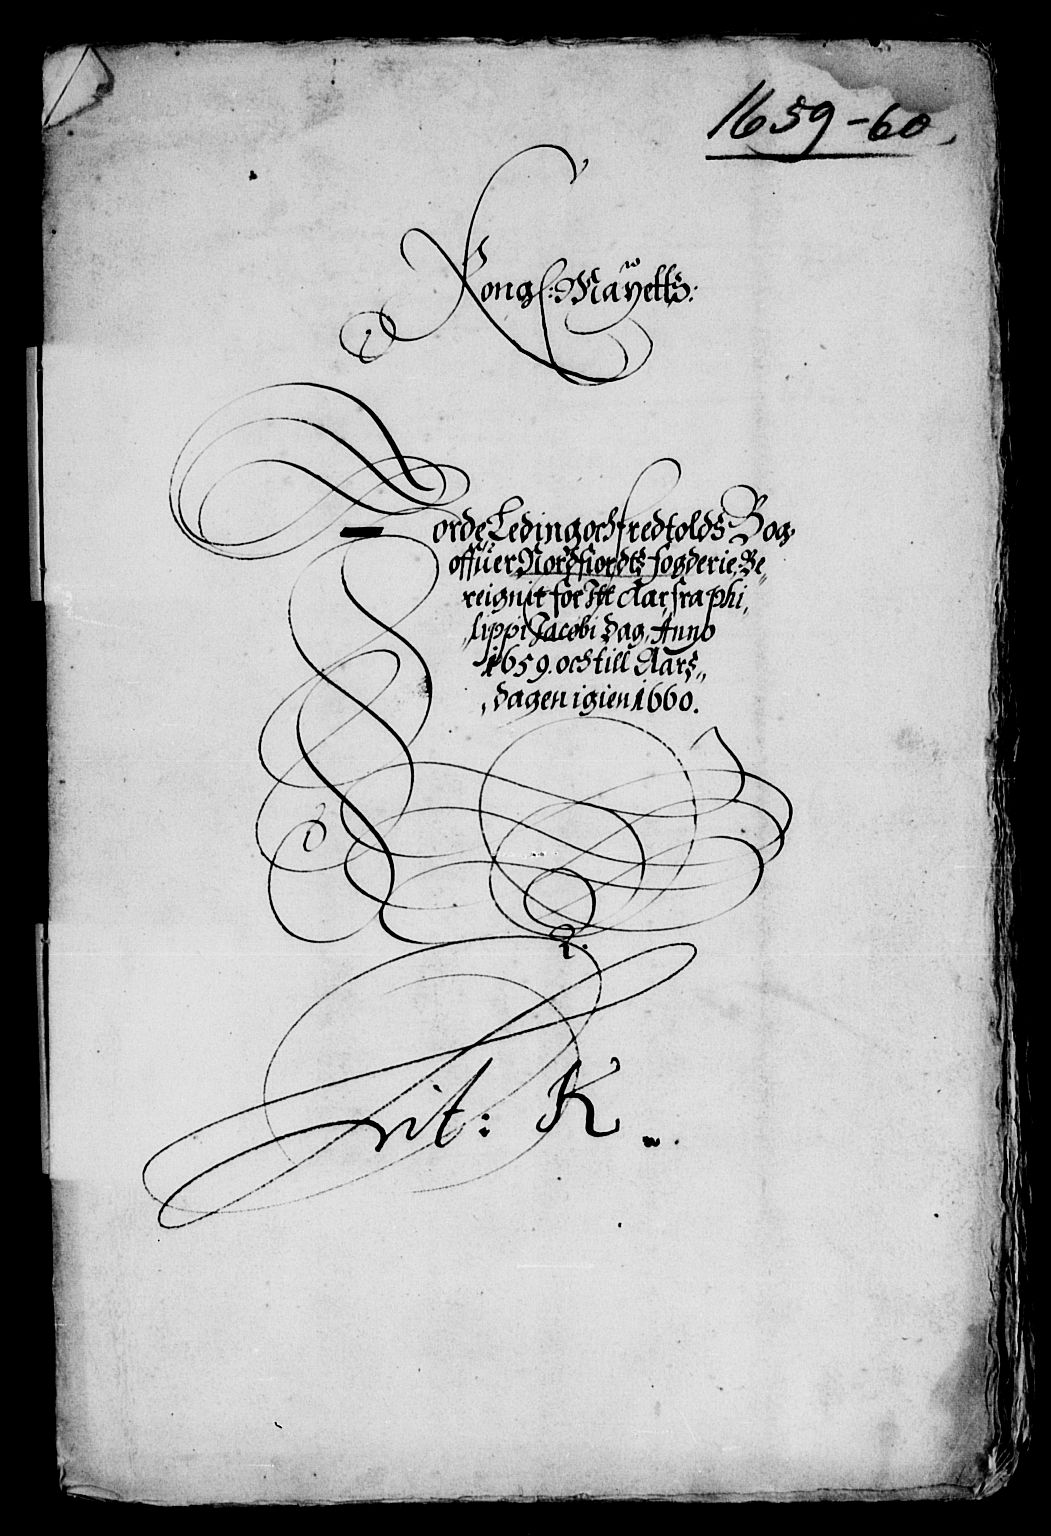 1659-60.
Kongl: Mayetts:
Jorde Leding och fredtolds Bog
offuer Nordfiordts fogderie Be„
reignit for Itt Aar fra phi„
lippi Jacobi dag Anno
1659. och till Aars„
dagen igien 1660.
2.
Lit: K